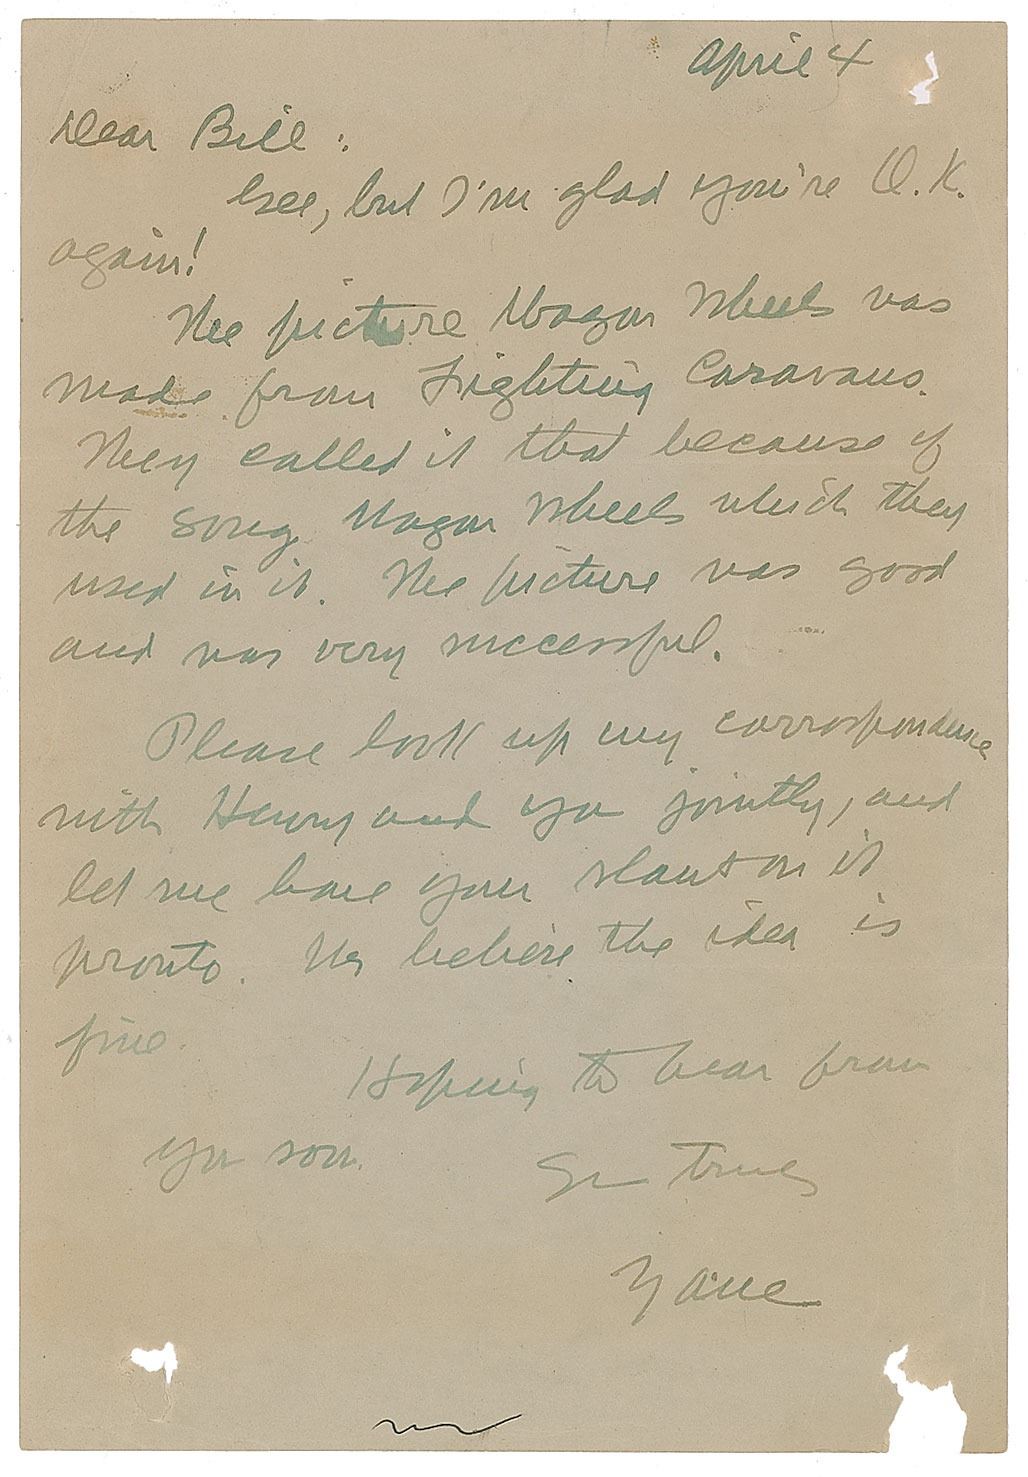 April 4
Dear Bill:
Gee, but I'm glad you're O.K.
again!
The picture Wagon Wheels was
made from Fighting Caravans.
They called it that because of
the song Wagon Wheels which they
used in it. The picture was good
and was very successful.
Please look up my corrospondence
with Henry and you jointly, and
let me have your slant on it
pronto. We believe the idea is
fine.
Hoping to hear from
you soon.
truly
Zane